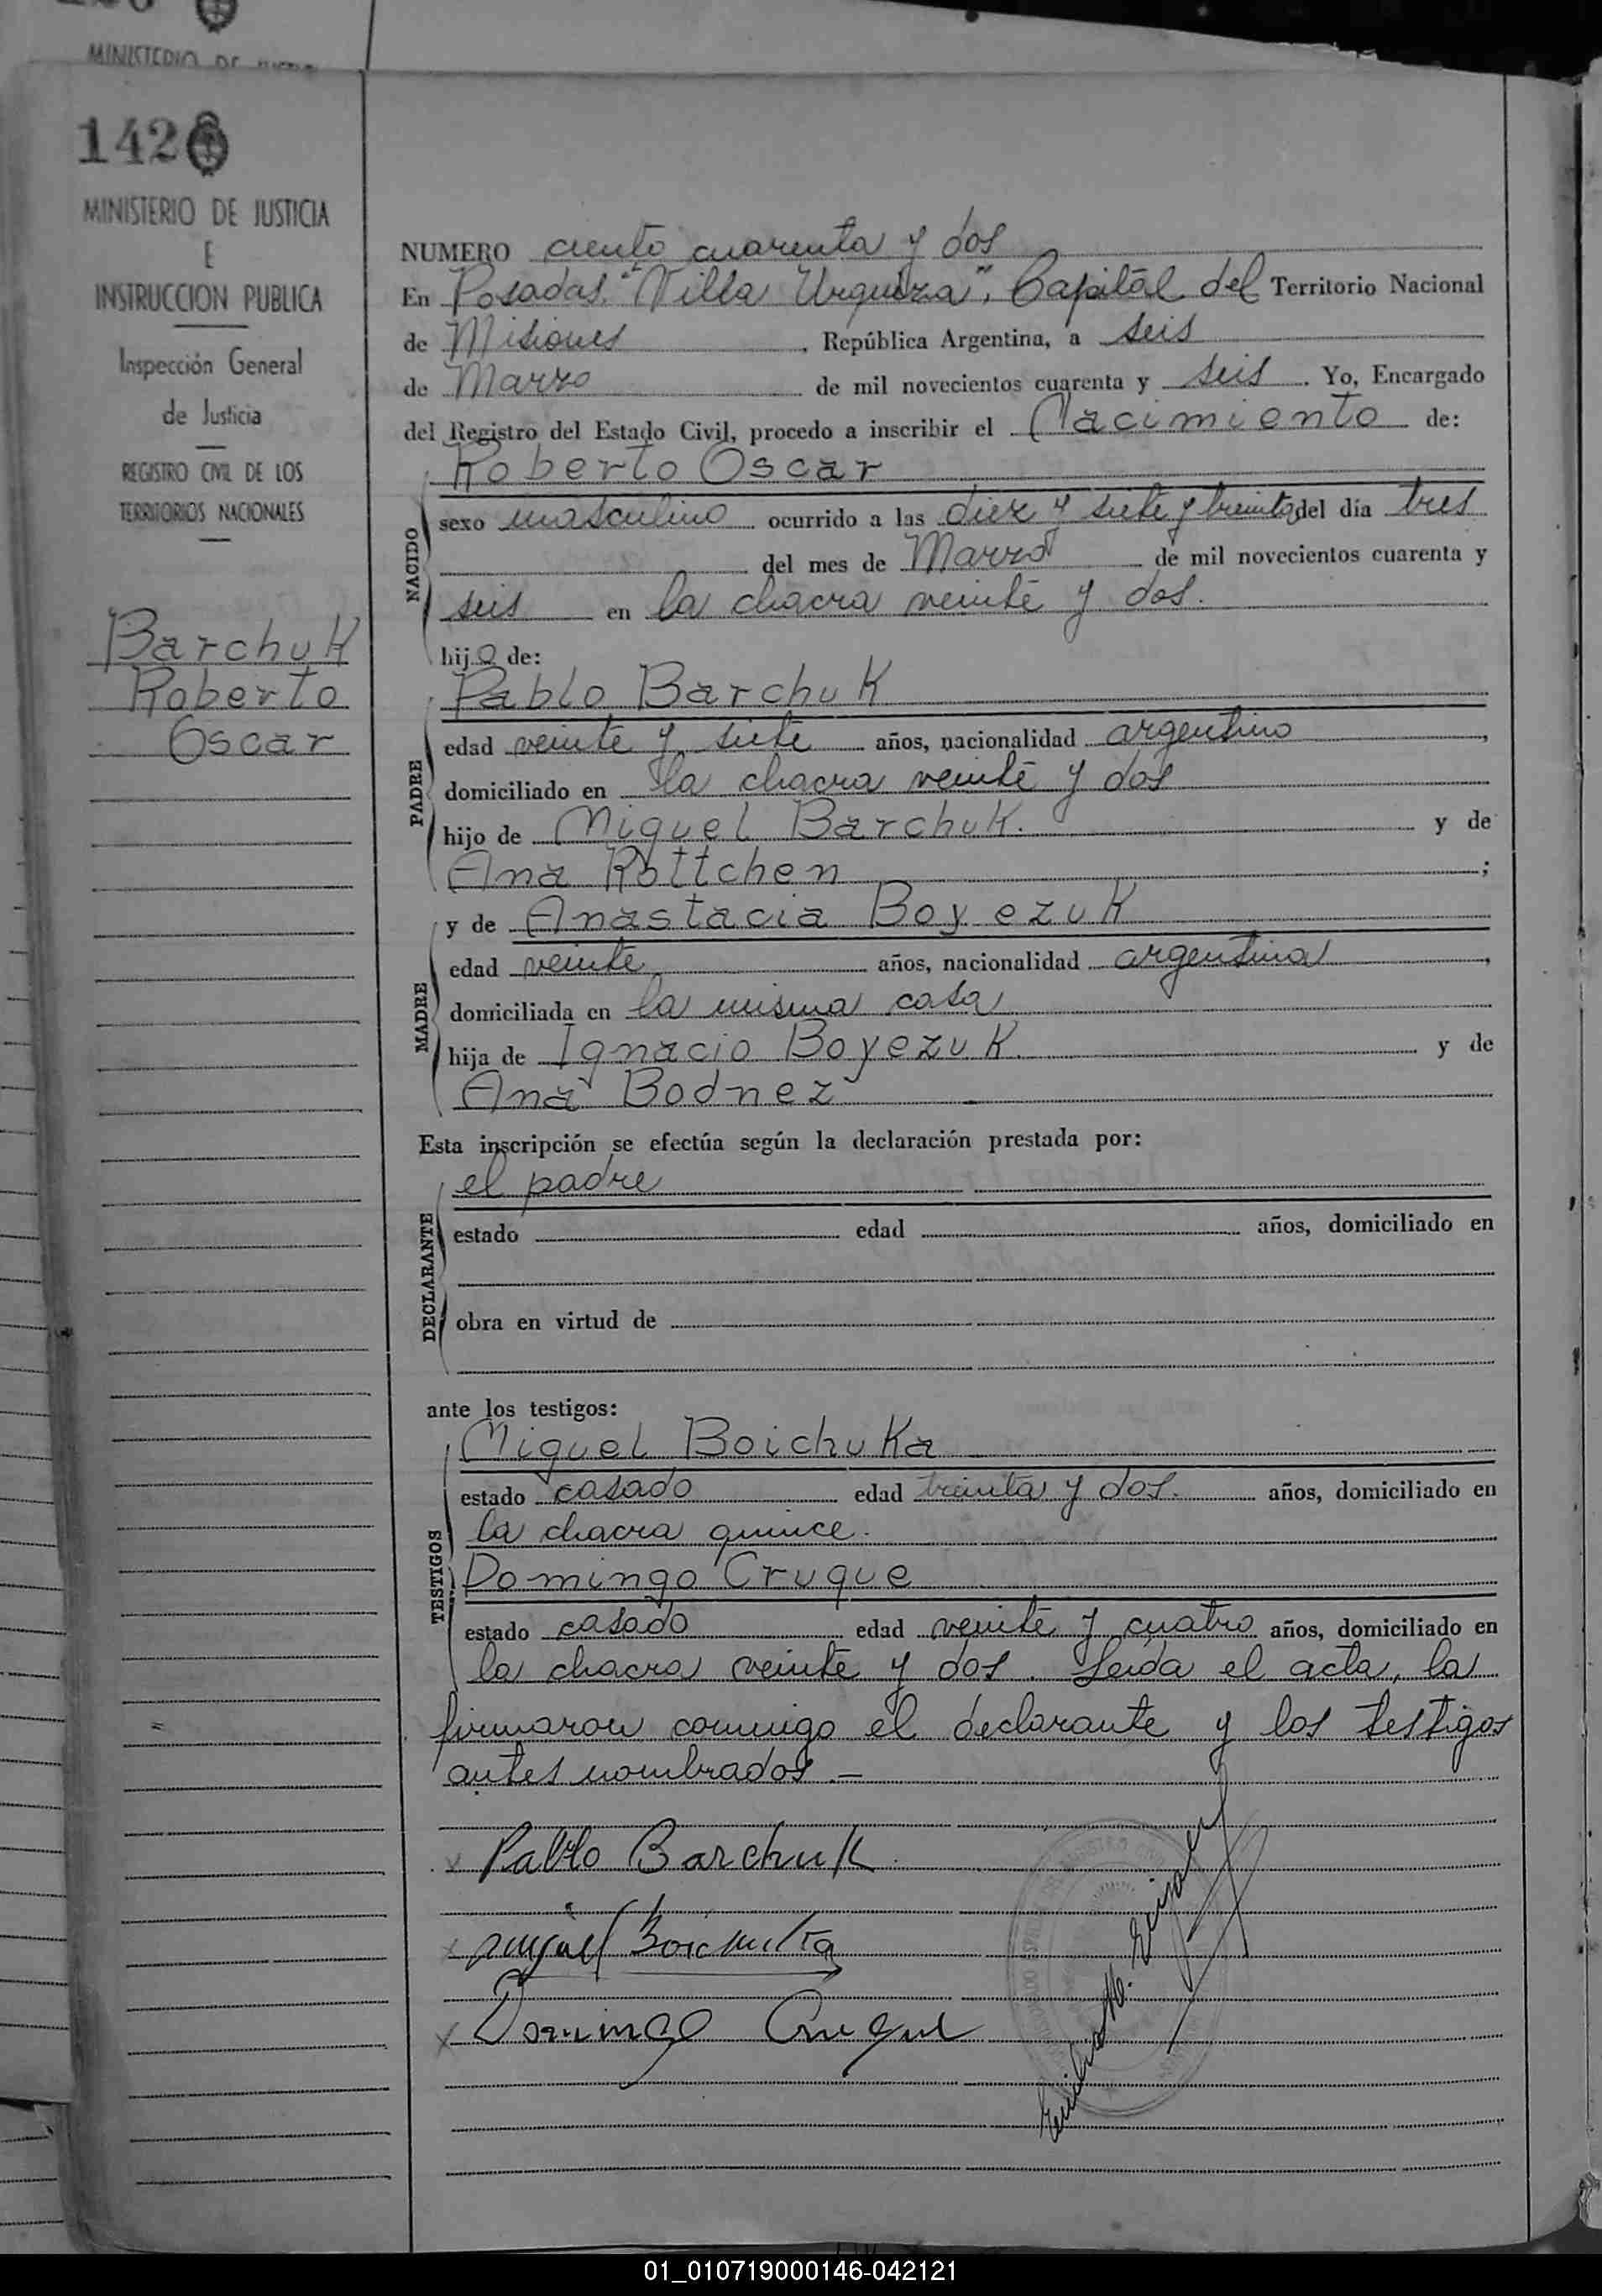 MINISTERIO DE
142
MINISTERIO DE JUSTICIA
E
INSTRUCCION PUBLICA
Inspección General
de Justicia
REGISTRO CIVIL DE LOS
TERRITORIOS NACIONALES
Barchuk
Roberto
Oscar
NUMERO ciento cuarenta y dos
En Posadas, "Villa Urquiza", Capital del Territorio Nacional
de Misiones, República Argentina, a seis
de Marzo de mil novecientos cuarenta y seis. Yo, Encargado
del Registro del Estado Civil, procedo a inscribir el Nacimiento de:
Roberto Oscar
NACIDO
sexo masculino ocurrido a las diez y siete y treinta del día tres
del mes de Marzo de mil novecientos cuarenta y
seis en la chacra veinte y dos.
hijo de:
Pablo Barchuk
PADRE
edad veinte y siete años, nacionalidad argentino,
domiciliado en la chacra veinte y dos
hijo de Miguel Barchuk. y de
Ana Rottchen;
y de Anastacia Boyezuk
MADRE
edad veinte años, nacionalidad argentina,
domiciliada en la misma casa
hija de Ignacio Boyezuk. y de
Ana Bodnez
Esta inscripción se efectúa según la declaración prestada por:
el padre
DECLARANTE
estado edad años, domiciliado en
obra en virtud de
ante los testigos:
Miguel Boichuka
TESTIGOS
estado casado edad treinta y dos. años, domiciliado en
la chacra quince.
Domingo Cruque
estado casado edad veinte y cuatro años, domiciliado en
la chacra veinte y dos. Leída el acta, la
firmaron conmigo el declarante y los testigos
antes nombrados.—
Pablo Barchuk
Miguel Boichuka
Domingo Cruque
01_010719000146-042121